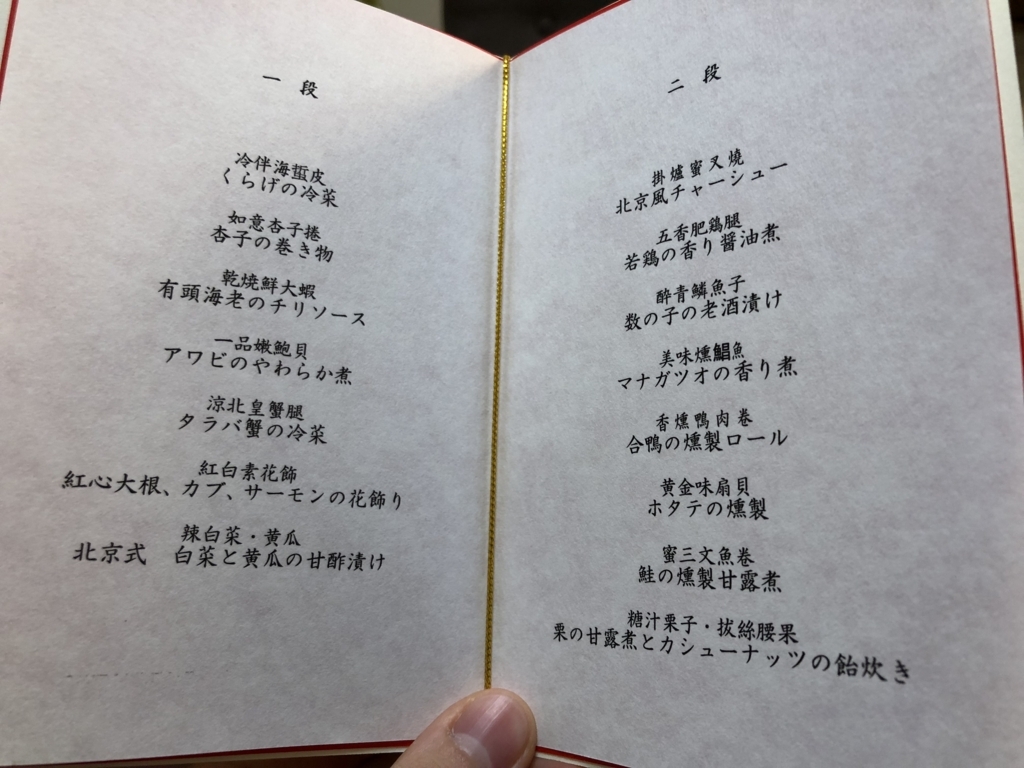 一段
冷伴海蜇皮
くらげの冷菜
如意杏子捲
杏子の巻き物
乾焼鮮大蝦
有頭海老のチリソース
一品嫩鮑貝
アワビのやわらか煮
涼北皇蟹腿
タラバ蟹の冷菜
紅白素花飾
紅心大根、カブ、サーモンの花飾り
辣白菜・黄瓜
北京式　白菜と黄瓜の甘酢漬け
二段
掛爐蜜叉燒
北京風チャーシュー
五香肥鶏腿
若鶏の香り醤油煮
酔青鱗魚子
数の子の老酒漬け
美味燻鯧魚
マナガツオの香り煮
香燻鴨肉巻
合鴨の燻製ロール
黄金味扇貝
ホタテの燻製
蜜三文魚巻
鮭の燻製甘露煮
糖汁栗子・拔絲腰果
栗の甘露煮とカシューナッツの飴炊き